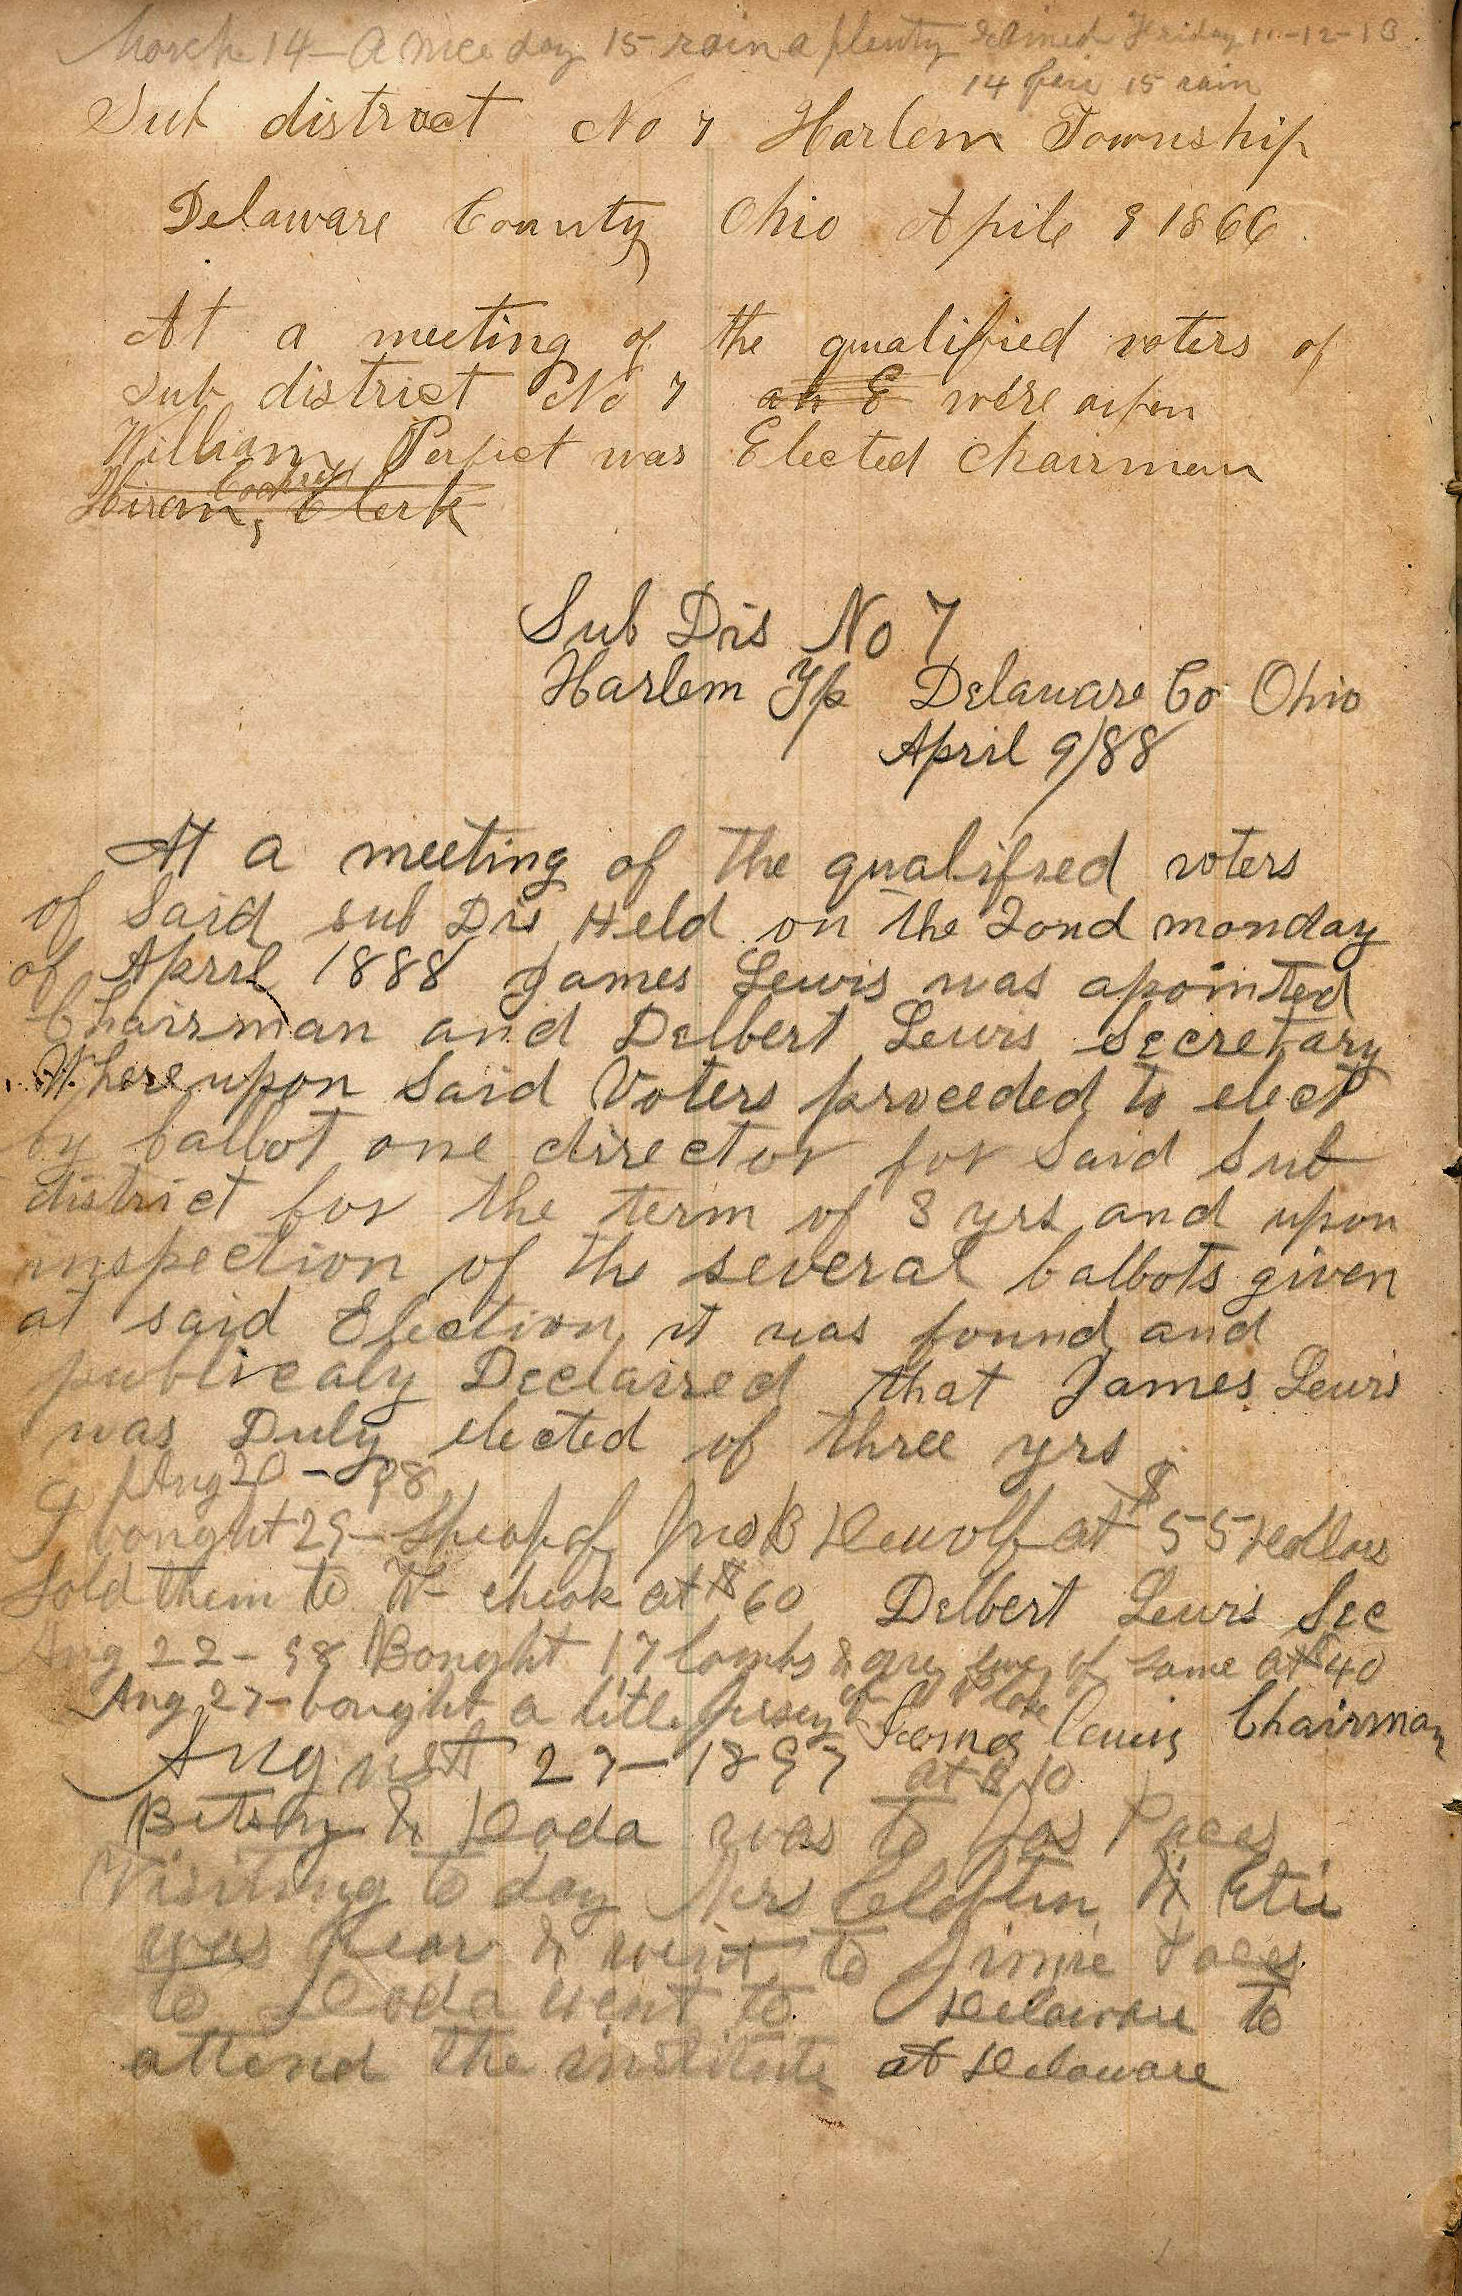 March 14 - A nice day 15 rain a plenty rained Friday 11-12-13
14 fair 15 rain
Sub district No 7 Harlem Township
Delaware County Ohio Aprile 9 1866
At a meeting of the qualified voters of
Sub district No 7 an E were
William Perfect was Elected Chairman
Hiram, Clerk
Sub Dis No 7
Harlem Tp Delaware Co Ohio
April 9/88
At a meeting of the qualified voters
of Said sub Dis Held on the 2ond monday
of April 1888 James Lewis was apointed
Chairman and Delbert Lewis Secretary
Whereupon Said Voters proceeded to elect
by ballot one director for Said Sub
district for the term of 3 yrs and upon
inspection of the several ballots given
at said Election it was found and
publicaly Declaired that James Lewis
was Duly elected of three yrs
Aug 20 - 98
I bought 29 - Sheap of B at $55 dollars
Sold them to cheak at $60 Delbert Lewis Sec
Aug 22 - 98 Bought 17 lambs & of same at $40
Aug 27 - bought a litle jersey of
James Lewis Chairman
August 27 - 1897 at $10
Betsy & Doda was to Jas Paces
Visiting to day Mrs &
was hear & went to Jimie Paces
to Doda went to Delaware to
attend the institute at Delaware